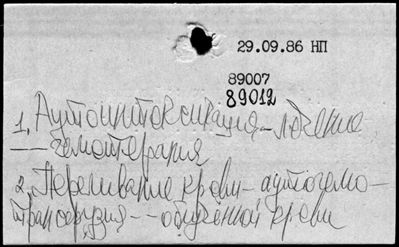 29.09.86 НП
89007
89012
1. Аутоинтоксикация - лечение
-- гемотерапия
2. Переливание крови - аутогемо-
трансфузия -- облучённой крови